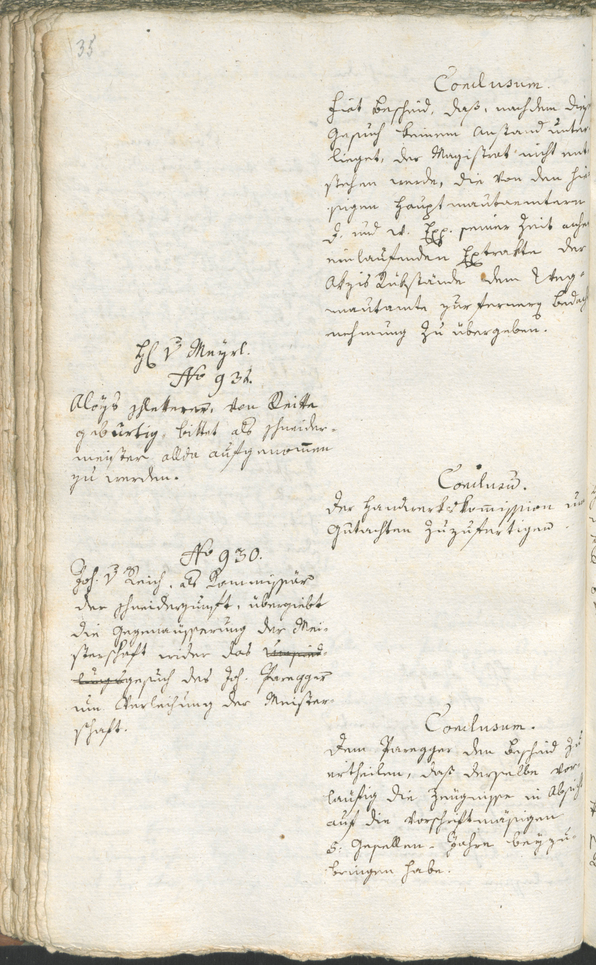 35
Conclusum.
Fiat Bescheid, daß, nachdem dies
Gesuch keinem Anstand unter
lieget, der Magistrat nicht ent
stehen werde, die von den hie
sigen Hauptmautaemtern
d. und w. Exp. seiner Zeit
einlaufenden Extrakte der
Akzis Rükstände dem Weg-
mautamte zur fernern Bedach
nehmung zu übergeben.
H v Mayrl.
No 931.
Aloÿs von Reitte
gebürtig, bittet als Schneider-
meister allda aufgenom̅en
zu werden.
Conclusū.
Der Handwerkskom̅ission um
Gutachten zuzufertigen.
No 930.
Joh. v Reich. als Kommissär
der Schneiderzunft, übergiebt
die Gegenaüsserung der Mei-
sterschaft wider das
gesuch des Joh. Paregger
um Verleihung der Meister-
schaft.
Conclusum.
Dem Paregger den Bescheid zu
ertheilen, daß derselbe vor-
laüfig die Zeugnisse in Absicht
auf die vorschriftmäsigen
6. Gesellen-Jahre beyzu-
bringen habe.